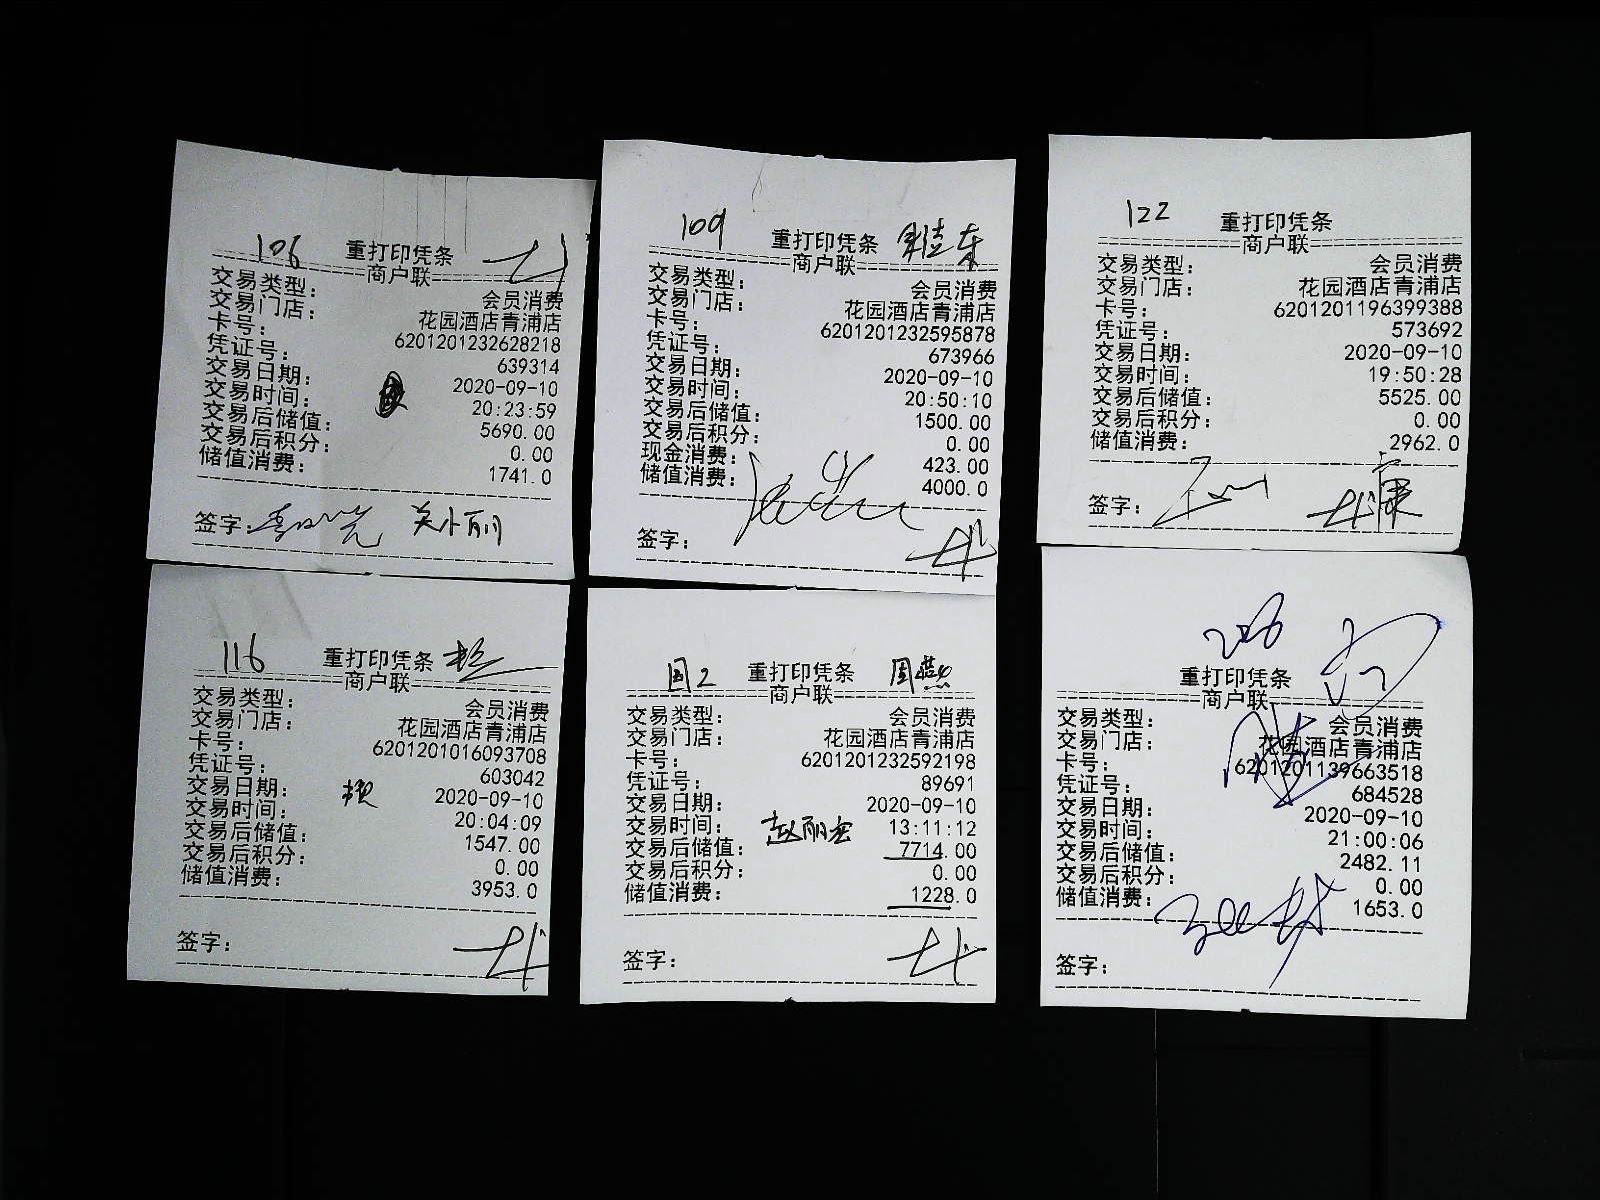 106
重打印凭条
商户联
交易类型： 会员消费
交易门店： 花园酒店青浦店
卡号： 6201201232628218
凭证号： 639314
交易日期： 2020-09-10
交易时间： 20:23:59
交易后储值： 5690.00
交易后积分： 0.00
储值消费： 1741.0
签字： 关小丽
109
重打印凭条
商户联
交易类型： 会员消费
交易门店： 花园酒店青浦店
卡号： 6201201232595878
凭证号： 673966
交易日期： 2020-09-10
交易时间： 20:50:10
交易后储值： 1500.00
交易后积分： 0.00
现金消费： 423.00
储值消费： 4000.0
签字：
122
重打印凭条
商户联
交易类型： 会员消费
交易门店： 花园酒店青浦店
卡号： 6201201196399388
凭证号： 573692
交易日期： 2020-09-10
交易时间： 19:50:28
交易后储值： 5525.00
交易后积分： 0.00
储值消费： 2962.0
签字：
116
重打印凭条
商户联
交易类型： 会员消费
交易门店： 花园酒店青浦店
卡号： 6201201016093708
凭证号： 603042
交易日期： 2020-09-10
交易时间： 20:04:09
交易后储值： 1547.00
交易后积分： 0.00
储值消费： 3953.0
签字：
国2 重打印凭条 周燕
商户联
交易类型： 会员消费
交易门店： 花园酒店青浦店
卡号： 6201201232592198
凭证号： 89691
交易日期： 2020-09-10
交易时间： 赵丽宏 13:11:12
交易后储值： 7714.00
交易后积分： 0.00
储值消费： 1228.0
签字：
206
重打印凭条
商户联
交易类型： 会员消费
交易门店： 花园酒店青浦店
卡号： 6201201139663518
凭证号： 684528
交易日期： 2020-09-10
交易时间： 21:00:06
交易后储值： 2482.11
交易后积分： 0.00
储值消费： 1653.0
签字：